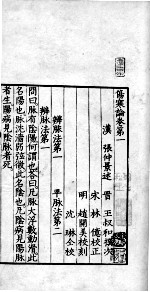 傷寒論卷第一
漢 張仲景述 晉 王叔和撰次
宋 林億校正
明 趙開美校刻
沈琳仝校
辨脉法第一 平脉法第二
辨脉法第一
問曰脉有陰陽何謂也荅曰凡脉大浮數動滑此
名陽也脉沈濇弱弦微此名陰也凡陰病見陽脉
者生陽病見陰脉者死